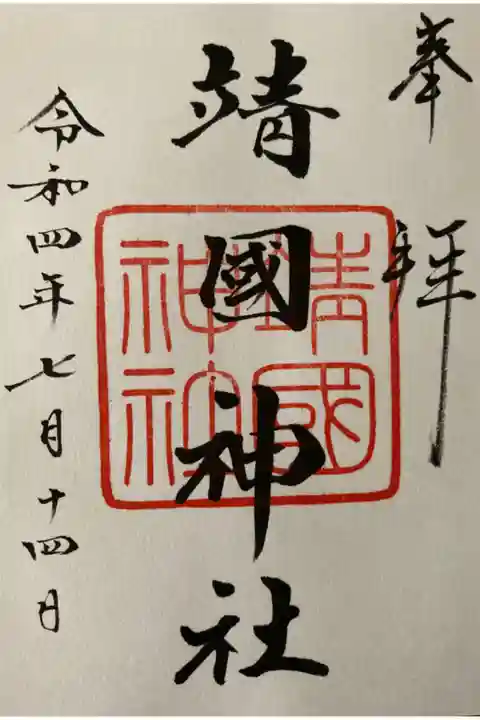 奉拝
靖國神社
靖國神社
令和四年七月十四日